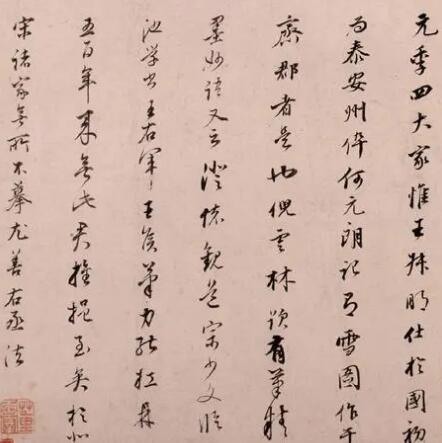 元季四大家惟王叔明仕於國初
為泰安州倅何元朗記有雪圖作于
齊郡者是也倪雲林有筆精
墨妙語又云澄懷觀道宗少文臨
池学书王右軍王侯筆力能扛鼎
五百年来無此君推挹至矣於北
宋諸家無所不摹尤善右丞法